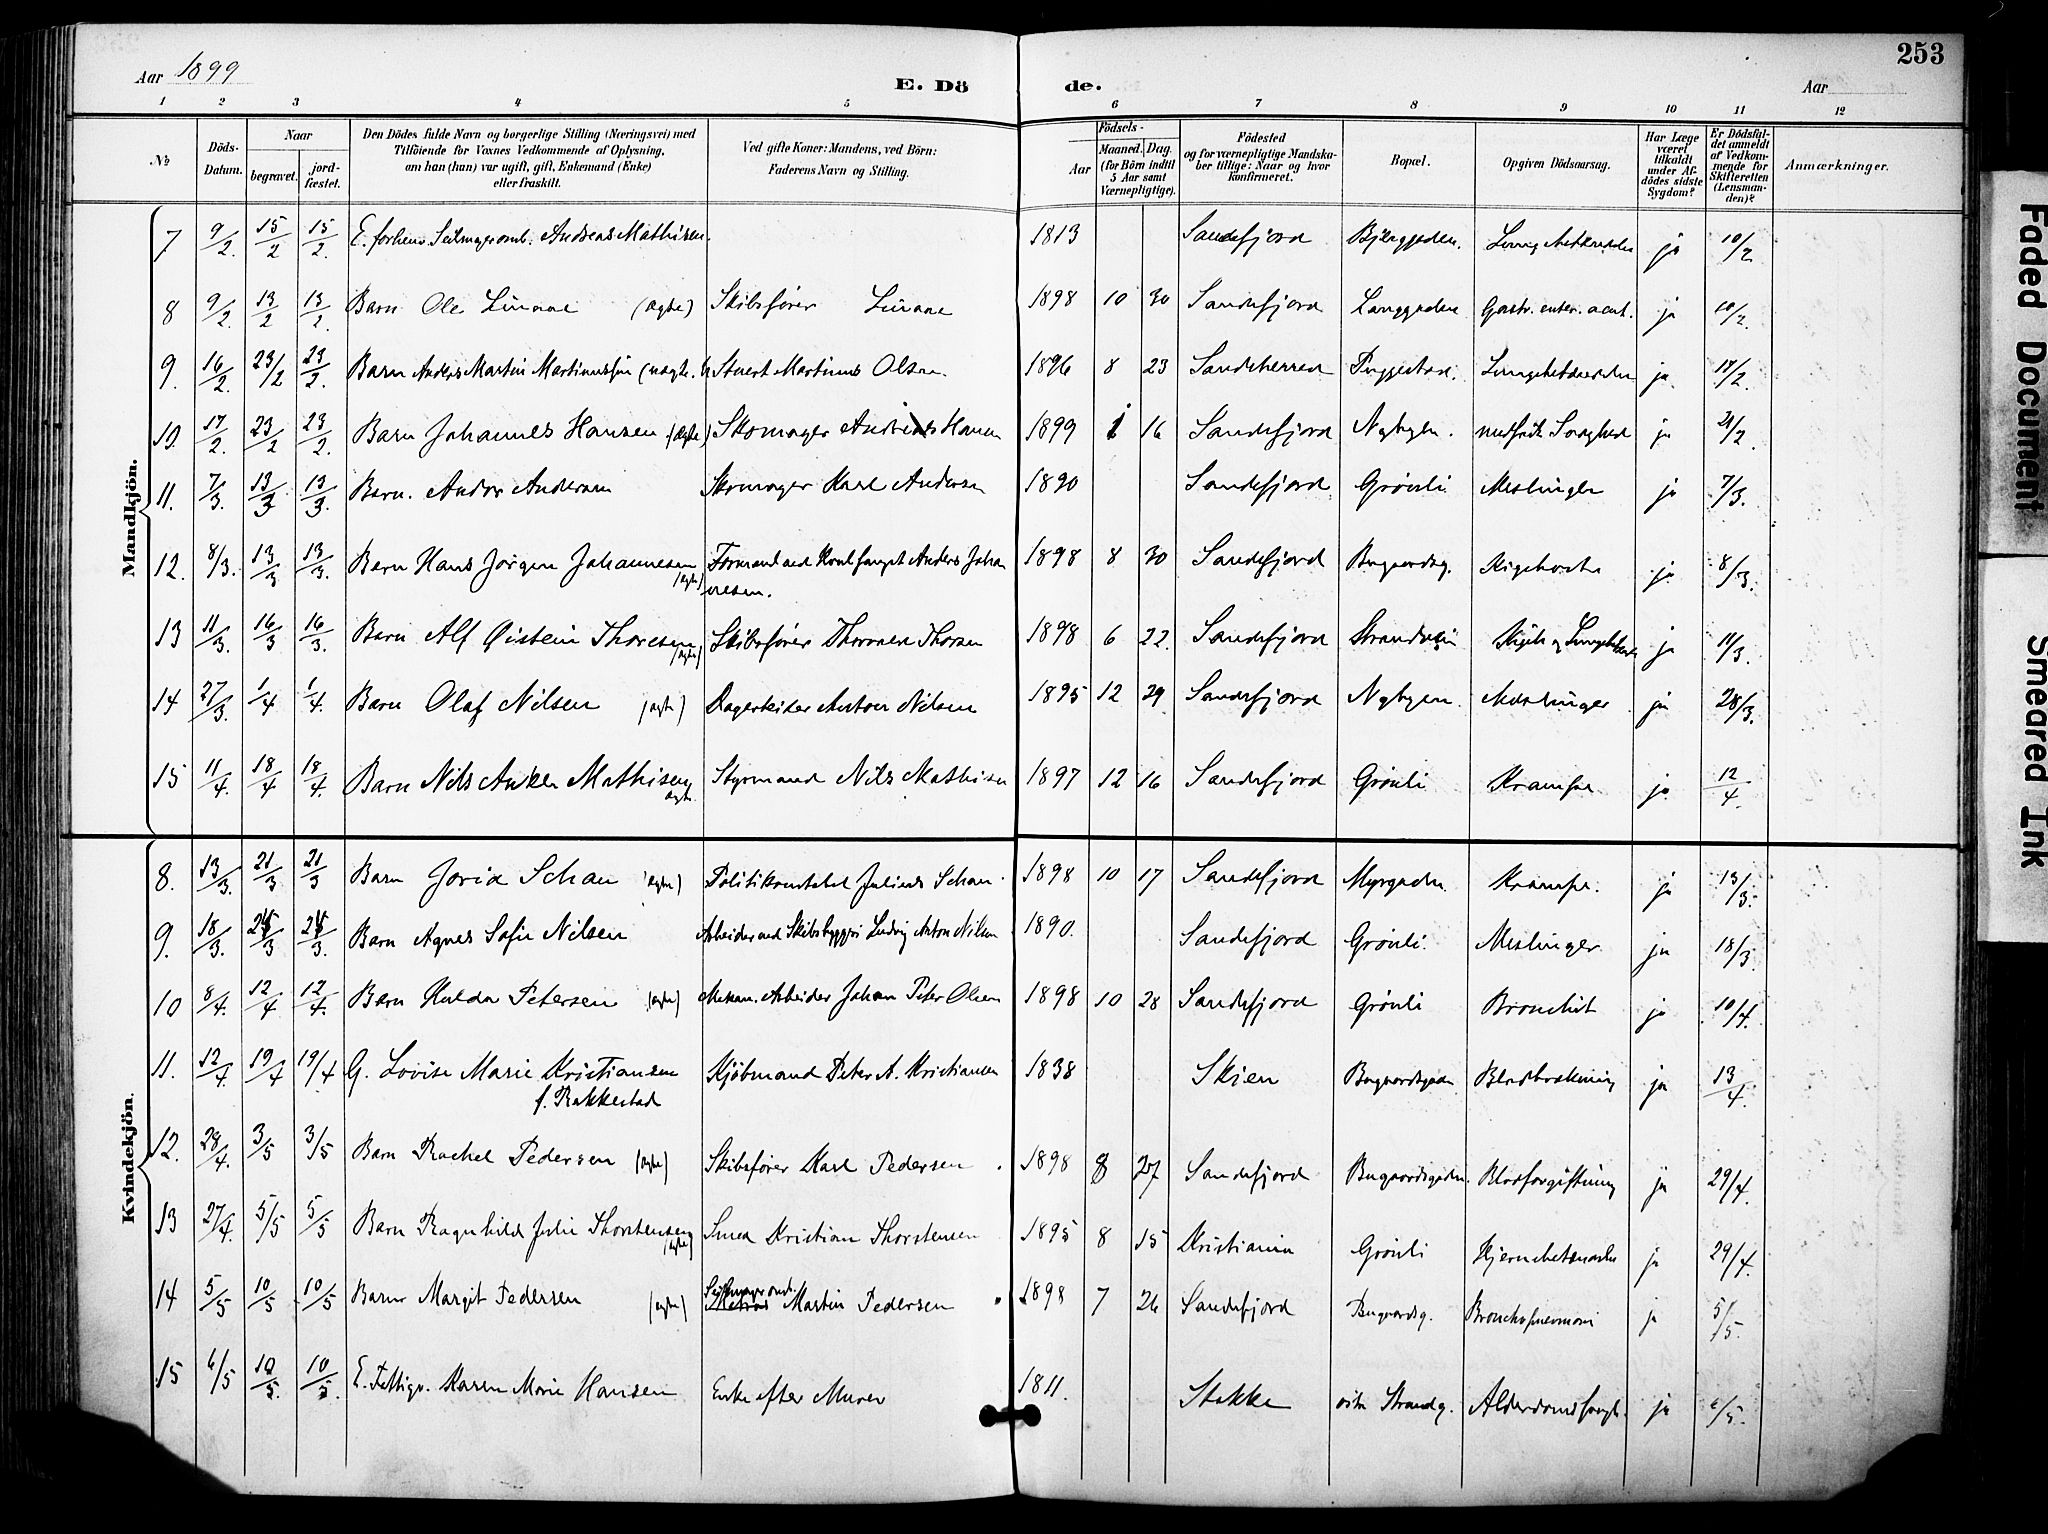 253
Aar 1899
E. Dö
de.
Aar
1 2 3 4 5 6 7 8 9 10 11 12
No
Döds-Datum.
Naar
begravet.
jord-fæstet.
Den Dödes fulde Navn og borgerlige Stilling (Næringsvei) med
Tilföiende for Voxnes Vedkommende af Oplysning,
om han (hun) var ugift, gift, Enkemand (Enke)
eller fraskilt.
Ved gifte Koner: Mandens, ved Börn:
Faderens Navn og Stilling.
Födsels-
Aar
Maaned. Dag.
(for Börn indtil
5 Aar samt
Værnepligtige).
Födested
og for værnepligtige Mandska-
ber tillige: Naar og hvor
konfirmeret.
Bopæl.
Opgiven Dödsaarsag.
Har Læge
været
tilkaldt
under Af-
dödes sidste
Sygdom?
Er Dödsfal-
det anmeldt
af Vedkom-
mende for
Skifteretten
(Lensman-
den)?
Anmærkninger.
Mandkjön.
7 9/2. 15/2 15/2. E. forhenv. Seilmagersvend. Andreas Mathisen. 1813 Sandefjord Bjerggaden. ja 10/2
8 9/2. 13/2 13/2. Barn Ole Linaae (ægte) Skibsfører Linaae 1898 10 30 Sandefjord Langgaden Gastr. enter. acut. ja 10/2.
9. 16/2 23/2 23/2. Barn Anders Martin Martinussen Stuert Martinus Olsen 1896 8 23 Sandeherred ja. 17/2.
10. 17/2. 23/2 23/2. Barn Johannes Hansen (ægte) Skomager Andreas Hansen 1899 1 16 Sandefjord Nybyen. medfødt Svaghed ja 21/2
11. 7/3. 13/3 13/3. Barn. Andor Andersen Skomager Karl Andersen 1890 Sandefjord Grønli Meslinger ja 7/3.
12. 8/3. 13/3 13/3. Barn Hans Jørgen Johannesen (ægte) Formand ved Hvalfanget Anders Johan
nesen. 1898 8 30 Sandefjord Bugaardsg. Kighoste ja 8/3.
13 11/3. 16/3 16/3. Barn Alf Øistein Thoresen (ægte) Skibsfører Thorsen 1898 6 22. Sandefjord ja 11/3.
14 27/3. 1/4 1/4. Barn Olaf Nilsen (ægte) Dagarbeider Anton Nilsen 1895 12 29 Sandefjord Nybyen. Meslinger ja 28/3.
15 11/4. 18/4 18/4. Barn Nils Anker Mathisen ægte Styrmand Nils Mathisen 1897 12 16 Sandefjord Grønli Krampe ja. 12/4.
Kvindekjön.
8. 13/3. 21/3 21/3 Barn Schau (ægte) Politikonstabel Julius Schau 1898 10 17 Sandefjord Myrgaden Krampe. ja 13/3.
9. 18/3. 24/3 24/3. Barn Agnes Sofie Nilsen Arbeider ved Skibsbyggeri Ludvig Anton Nilsen 1890. Sandefjord Grønli. Meslinger ja 18/3.
10 8/4. 12/4 12/4. Barn Hulda Petersen (ægte) Mekan. Arbeider Johan Peter Olsen 1898 10 28 Sandefjord Grønli Bronchit ja 10/4.
11. 12/4. 19/4 19/4 G. Lovise Marie Kristiansen
f. Rakkestad Kjøbmand Peter A. Kristiansen 1838 Skien Bugaardsgaden Blodbrækning ja 13/4.
12. 28/4. 3/5 3/5 Barn Rachel Pedersen (ægte) Skibsfører Karl Pedersen 1898 8 27 Sandefjord Bugaardsgaden. Blodforgiftning ja 29/4.
13 27/4. 5/5 5/5 Barn Ragnhild Julie Thorstensen (ægte) Smed Kristian Thorstensen 1895 8 15 Kristiania Grønli Hjernebetændelse ja 29/4.
14 5/5 10/5 10/5 Barn Margit Pedersen (ægte) Martin Pedersen 1898 7 26 Sandefjord Bugaardsg. Bronchopneumoni ja 5/5.
15 6/5 10/5. 10/5. E. Fattigv. Karen Marie Hansen Enke efter Murer 1811. Stokke østre Strandg. ja 6/5.
Faded Document
Smeared Ink